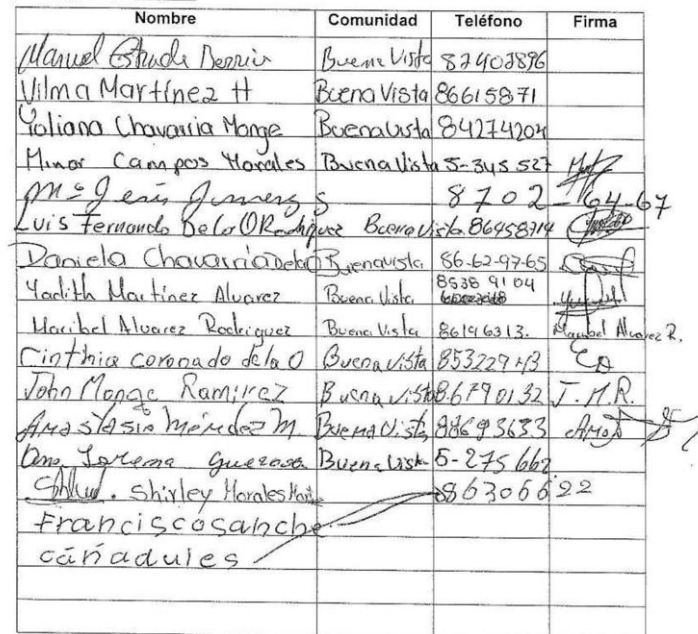 Nombre Comunidad Teléfono Firma
Manuel Estrada Berrios Buena Vista 87402896
Vilma Martínez H Buena Vista 86615871
Yoliana Chavarria Monge Buena Vista 84274204
Minor Campos Morales Buena Vista 5-345 527
Mª Jesús Jimenez S 8702-64-67
Luis Fernando De la O Rodríguez Buena Vista 86458714
Daniela Chavarría De la O Buenavista 86-62-97-65
Yadith Martínez Alvarez Buena Vista 8538 91 04
Maribel Alvarez Rodriguez Buena Vista 86196313. Maribel Alvarez R.
Cinthia coronado de la O Buena vista 85322943
John Monge Ramírez Buena Vista 86790132 J.M.R.
Anastasia Méndez M. Buena Vista 88693633
Ana Lorena Buena Vista 5-275 662
Shirley Morales 86306622
Franciscosanche
cañadules